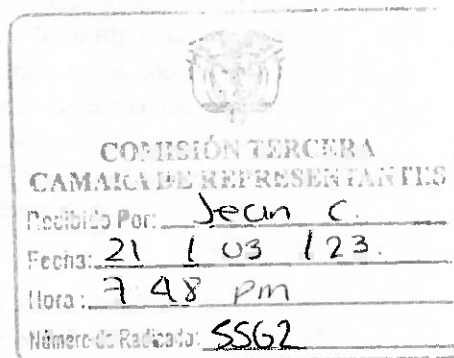 COMISIÓN TERCERA
CAMARA DE REPRESENTANTES
Recibido Por: Jean C.
Fecha: 21 / 03 / 23.
Hora: 7 48 pm
Número de Radicado: 5562